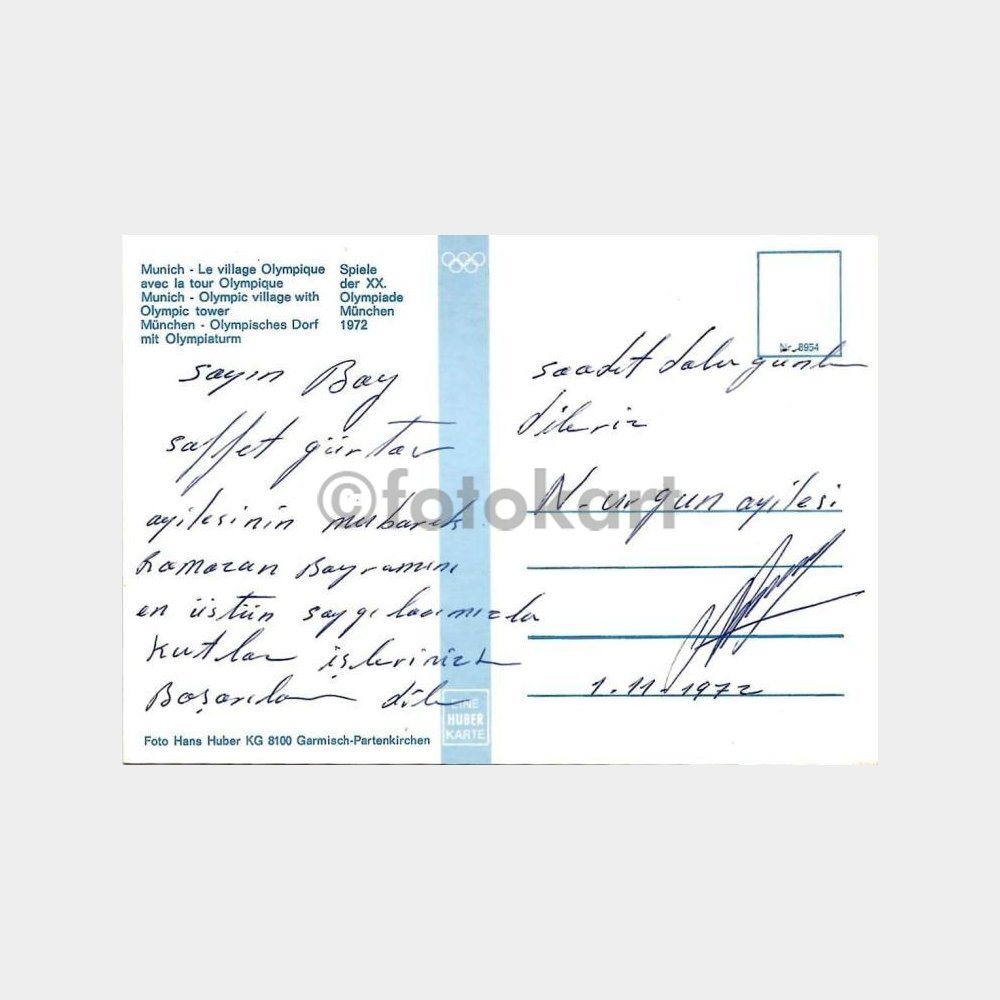 Munich - Le village Olympique
avec la tour Olympique
Munich - Olympic village with
Olympic tower
München - Olympisches Dorf
mit Olympiaturm
Spiele
der XX.
Olympiade
München
1972
Nr. 8954
sayın Bay
saffet
ayilesinin mubarek
Ramazan Bayramını
en üstün saygılarımızla
kutlar işlerinizde
Başarılar diler
saadet dolu günler
dileriz
N. urgun ayilesi
1.11.1972
EINE
HUBER
KARTE
Foto Hans Huber KG 8100 Garmisch-Partenkirchen
©fotokart